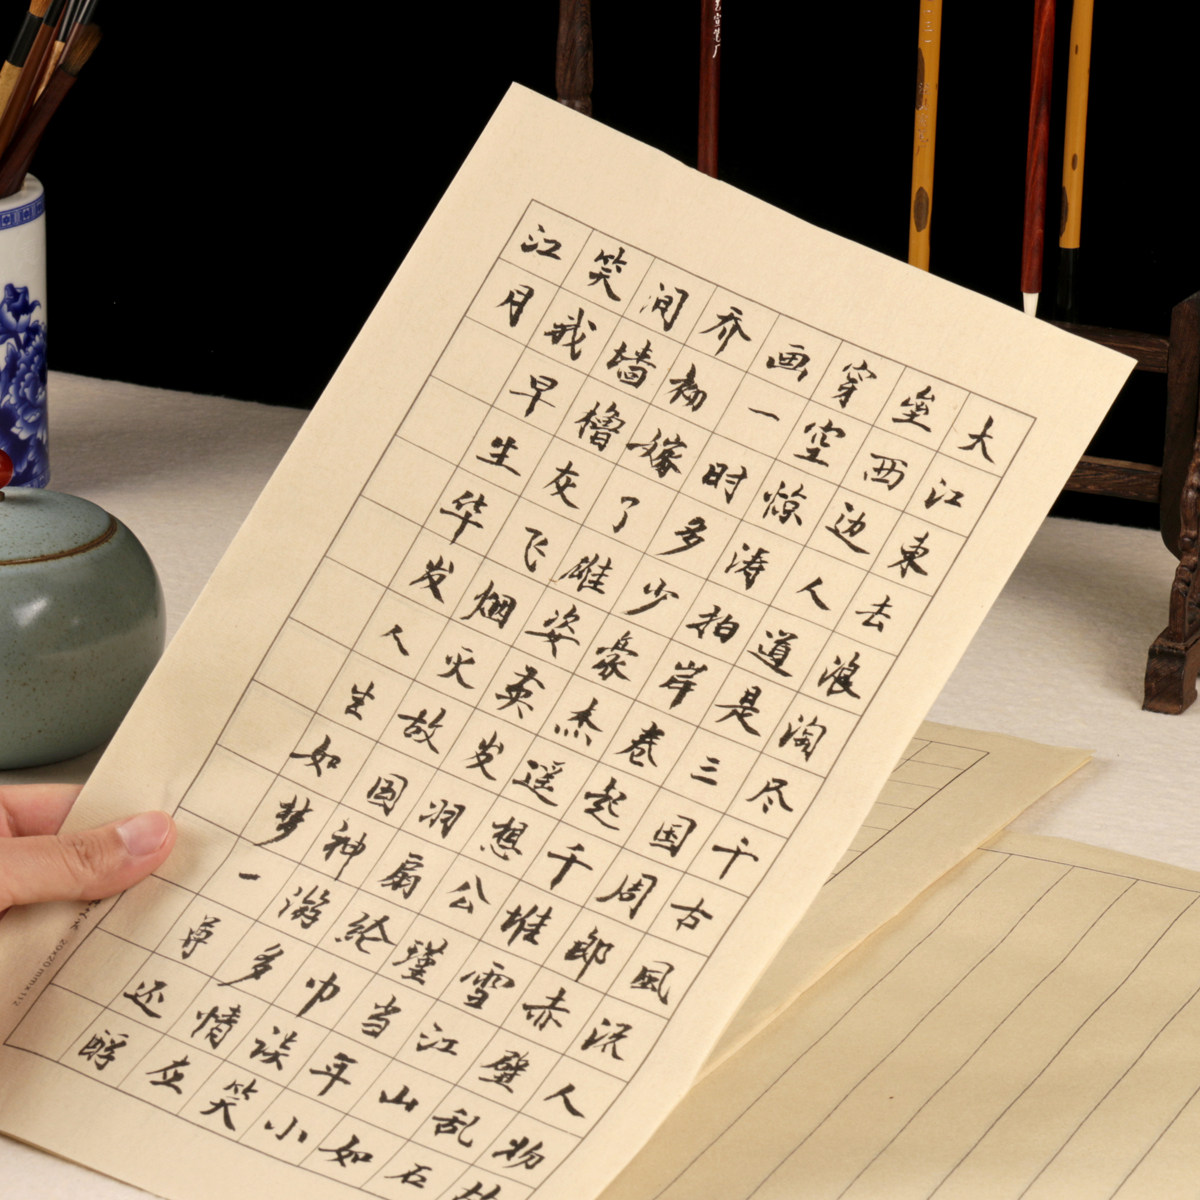 大江東去浪淘尽千古風流人物故
垒西边人道是三国周郎赤壁乱石
穿空惊涛拍岸卷起千堆雪江山如
画一时多少豪杰遥想公瑾当年小
乔初嫁了雄姿英发羽扇纶巾谈笑
间墙橹灰飞烟灭故国神游多情应
笑我早生华发人生如梦一尊还酹
江月
20x20mmx112
宣笔厂